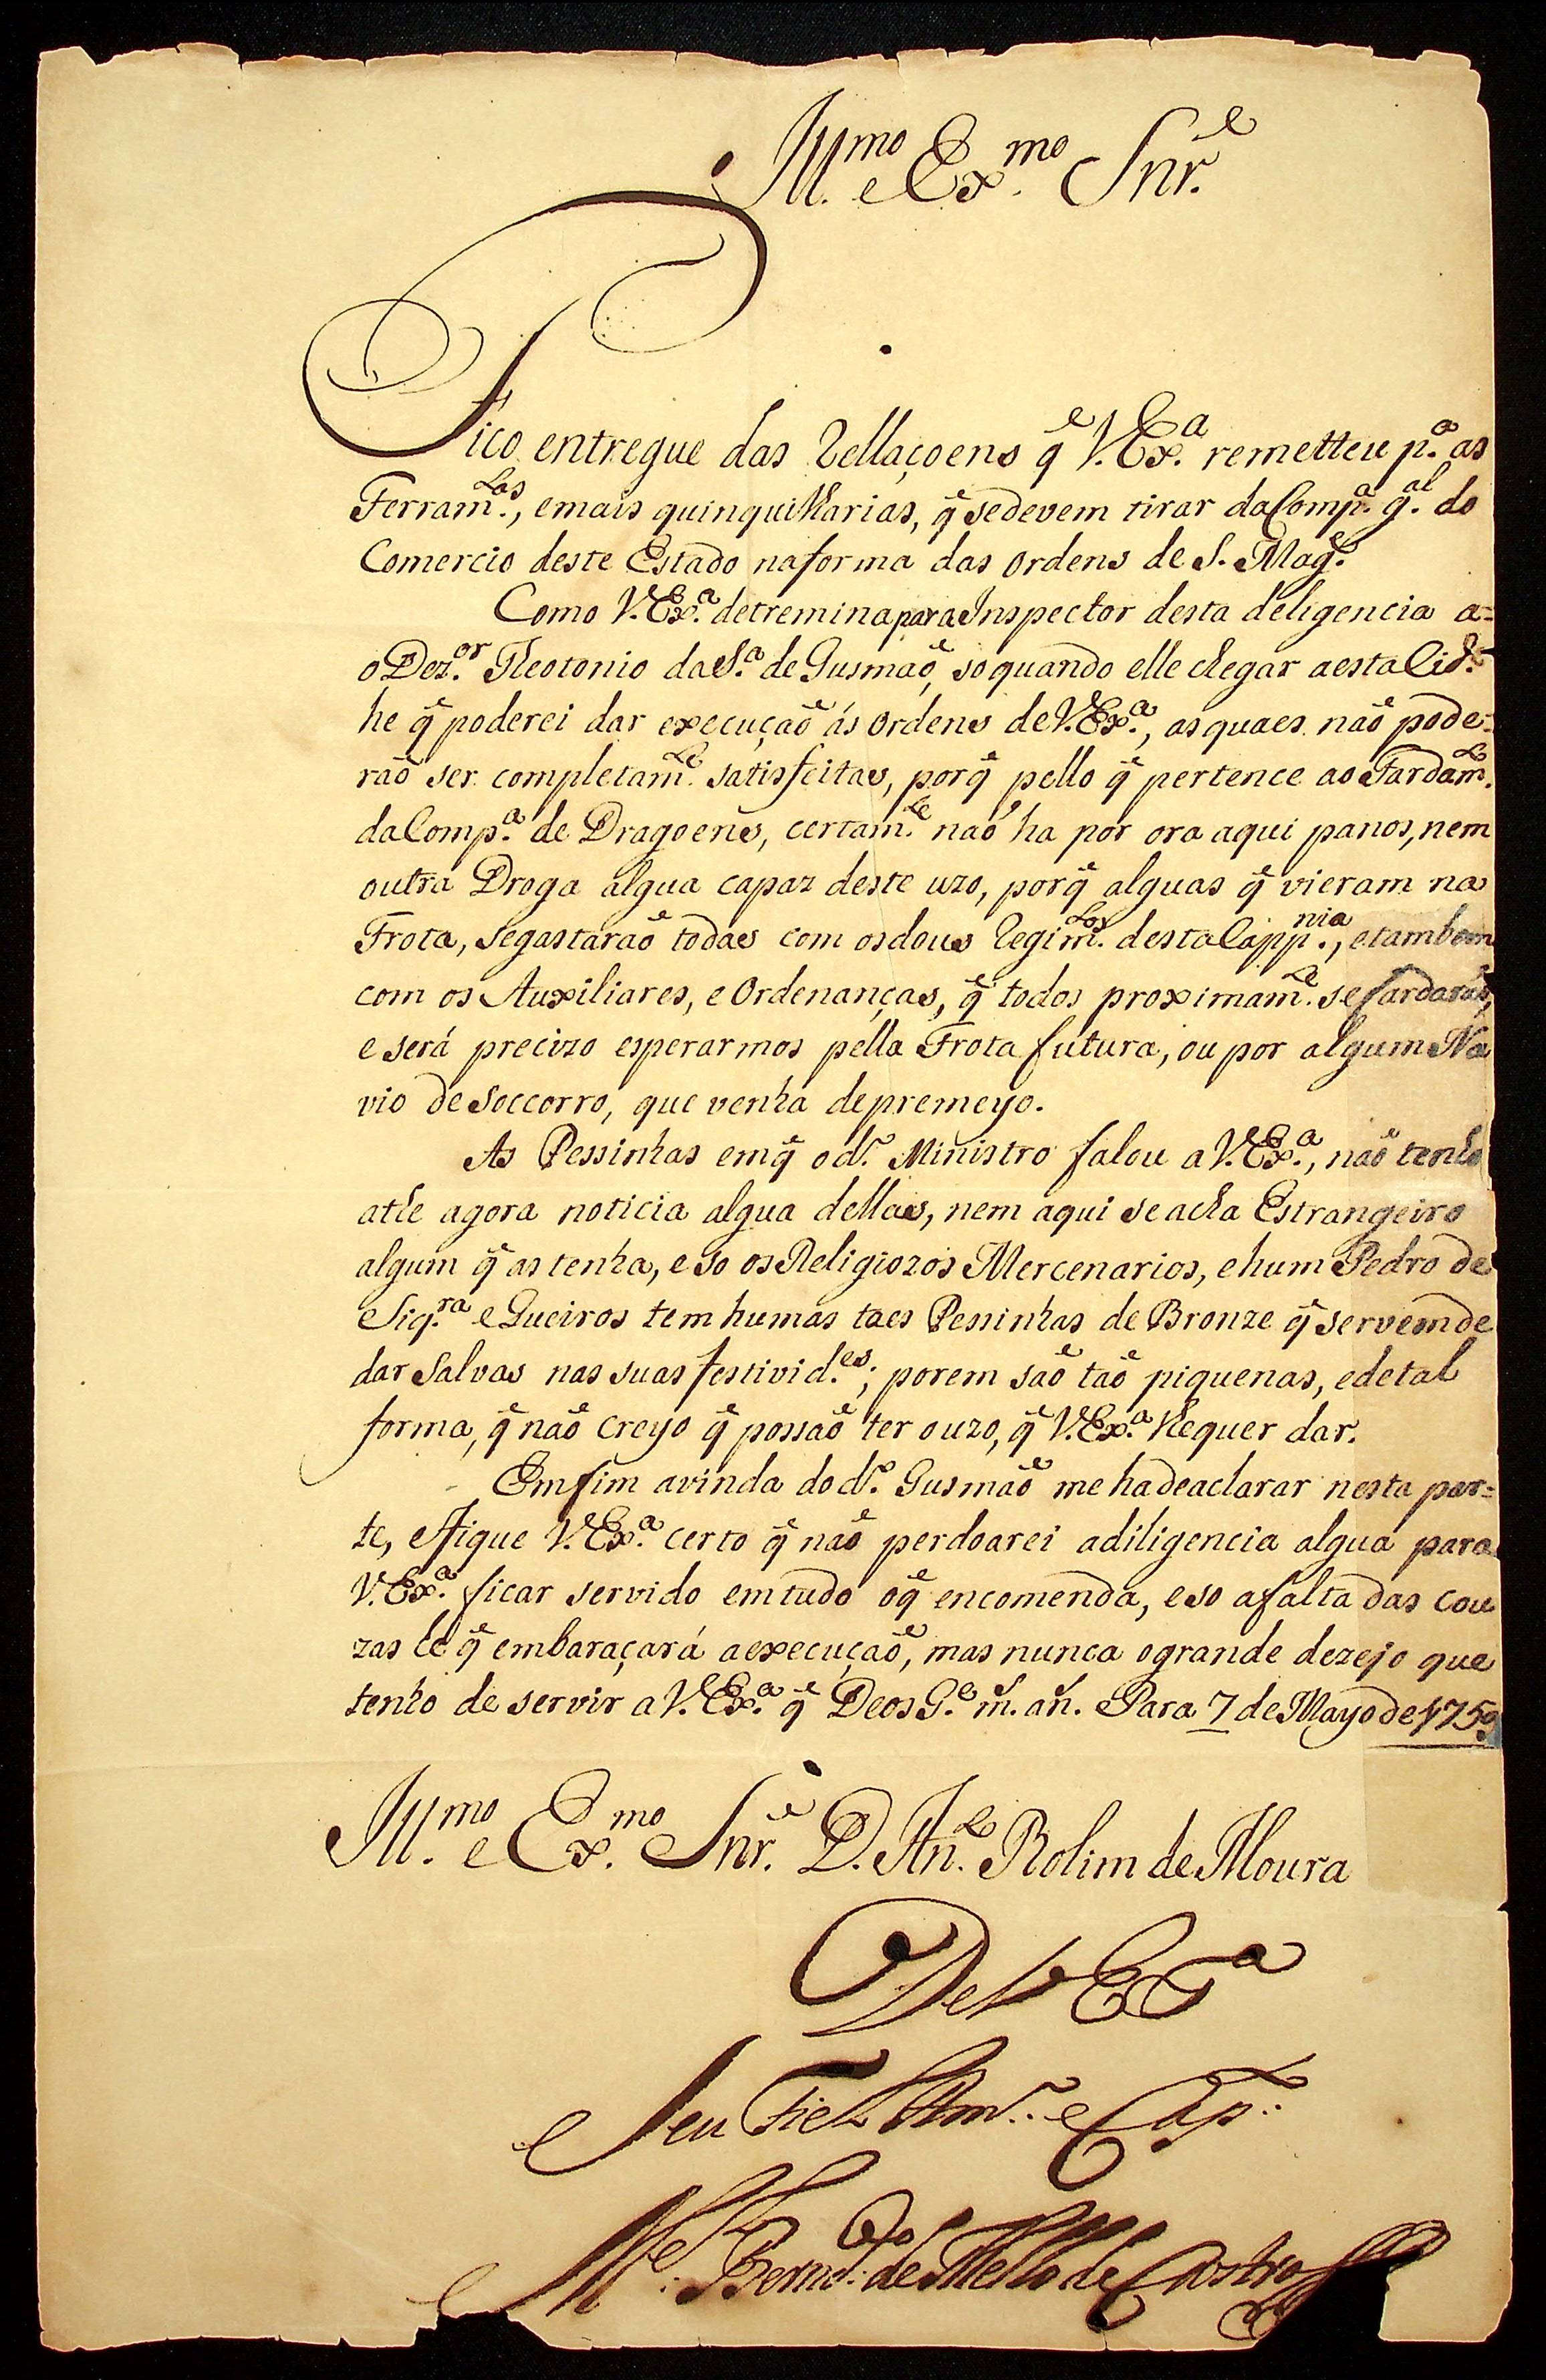 Ill.mo e Ex.mo Snr.e
Fico entregue das Rellaçoens q̃ V.Ex.a remetteu p.a as
Ferram.tas, emais quinquilharias, q̃ sedevem tirar daComp.a g.al do
Comercio deste Estado naforma das Ordens de S. Mag.e
Como V.Ex.a detreminaparaInspector desta deligencia a=
o Dez.or Theotonio daS.a de Gusmaõ, so quando elle chegar aestaCid.e
he q̃ poderei dar execuçaõ ás Ordens deV.Ex.a, as quaes naõ pode=
raõ ser completam.te satisfeitas, porq̃ pello q̃ pertence ao Fardam.to
daComp.a de Dragoens, certam.te naõ ha por ora aqui panos, nem
outra Droga algua capaz deste uzo, porq̃ alguas q̃ vieram na
Frota, segastaraõ todas com osdous Regim.tos destaCapp.nia, etambem
com os Auxiliares, e Ordenanças, q̃ todos proximam.te se fardaraõ,
e será precizo esperarmos pella Frota futura, ou por algum Na
vio de Soccorro, que venha depremeyo.
As Pessinhas emq̃ od.o Ministro falou a V.Ex.a, naõ tenho
athe agora noticia algua dellas, nem aqui se acha Estrangeiro
algum q̃ as tenha, e so os Religiozos Mercenarios, ehum Pedro de
Siq.ra e Queiros tem humas taes Pessinhas de Bronze q̃ servemde
dar Salvas nas suas festivid.es; porem saõ taõ piquenas, edetal
forma, q̃ naõ creyo q̃ possaõ ter ouzo, q̃ V.Ex.a lhequer dar.
Emfim avinda dod.o Gusmaõ me hadeaclarar nesta par=
te, efique V.Ex.a certo q̃ naõ perdoarei adiligencia algua para
V.Ex.a ficar servido emtudo oq̃ encomenda, eso afalta das cou
zas he q̃ embaraçará aexecuçaõ, mas nunca ogrande dezejo que
tenho de servir a V.Ex.a q̃ Deos G.e m. an. Para 7 de Mayo de 1759
Ill.mo e Ex.mo Snr.e D. An.to Rolim de Moura
De V Ex.a
Seu Fiel Am.o e Cap.
M.el Bern.do de Mello de Castro